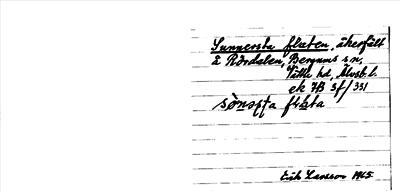 Sunnersta flaten, åkerfält
å Rördalen, Bergums sn,
Vättle hd, Älvsb. l.
ek 7B 5f/331
sònsṭa flata
Erik Larsson 1965